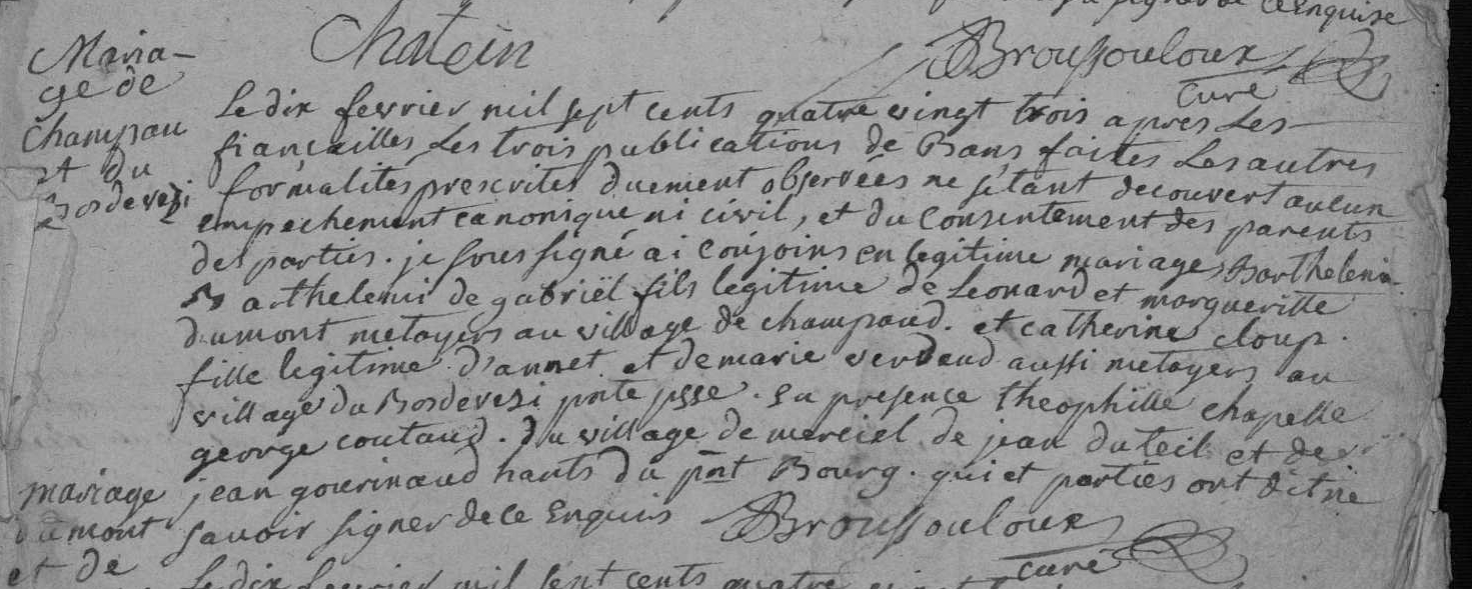 signer de ce Enquise
Chatein Broussouloux
curé
Maria-
ge de
Champau
et du
Bosdevezi
Le dix fevrier mil sept cents quatre vingt trois apres Les
fiançailles Les trois publications de Bans faites Les autres
formalités prescrites duement observées ne s'étant decouvert aucun
empechement canonique ni civil, et du Consentement des parents
des parties. je soussigné ai conjoins en legitime mariage, Barthelemi
Barthelemi de gabriël fils legitime de Leonard et marguerite
dumont metayers au village de champaud. et catherine cloup.
fille legitime d'annet et de marie verdaud aussi metayers au
village du Bosdevesi pnte psse. En presence theophille chapelle
george coutaud. du village de merciel de jean duteil et de
jean gourinaud hants du pnt Bourg. qui et parties ont dit ne
savoir signer de ce Enquis Broussouloux
curé
mariage
dumont
et de
Le dix fevrier mil sept cents quatre